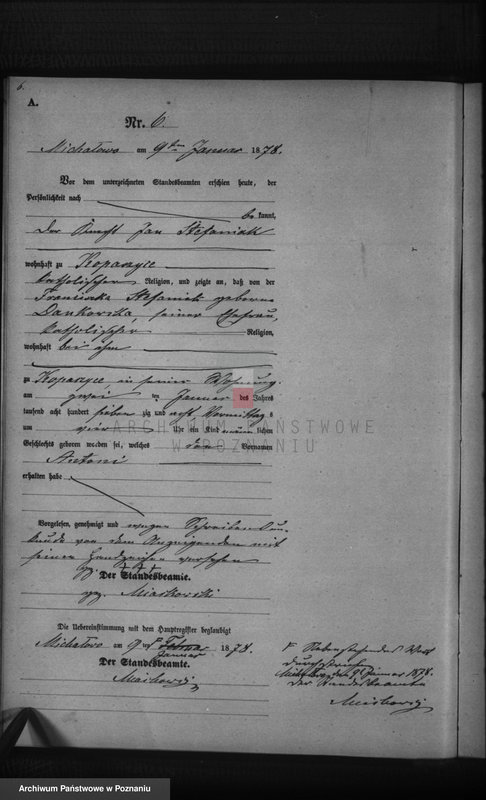 6.
A.
Nr. 6.
Michalowo am 9ten Januar 1878.
Vor dem unterzeichneten Standesbeamten erschien heute, der
Persönlichkeit nach
be kannt,
Der Knecht Jan Stefaniak
wohnhaft zu Koparzyce
katholischer Religion, und zeigte an, daß von der
Franciska Stefaniak geborene
seiner Ehefrau,
katholischer Religion,
wohnhaft bei ihm
zu Koparzyce in seiner Wohnung
am zwei ten Januar des Jahres
tausend acht hundert sieben zig und acht Vormittags
um vier Uhr ein Kind männlichen
Geschlechts geboren worden sei, welches den Vornamen
Antoni
erhalten habe
ARCHIWUM PAŃSTWOWE
W POZNANIU
Vorgelesen, genehmigt und wegen Schreibensun-
kunde von dem Anzeigenden mit
seinem Handzeichen versehen
+++
Der Standesbeamte.
gez. Miaskowski
Die Uebereinstimmung mit dem Hauptregister beglaubigt
Michalowo am 9ten Februar 1878.
Januar
Der Standesbeamte.
Nebenstehendes Wort
durchstrichen
den 9 Januar 1878.
Der Standesbeamte
Archiwum Państwowe w Poznaniu